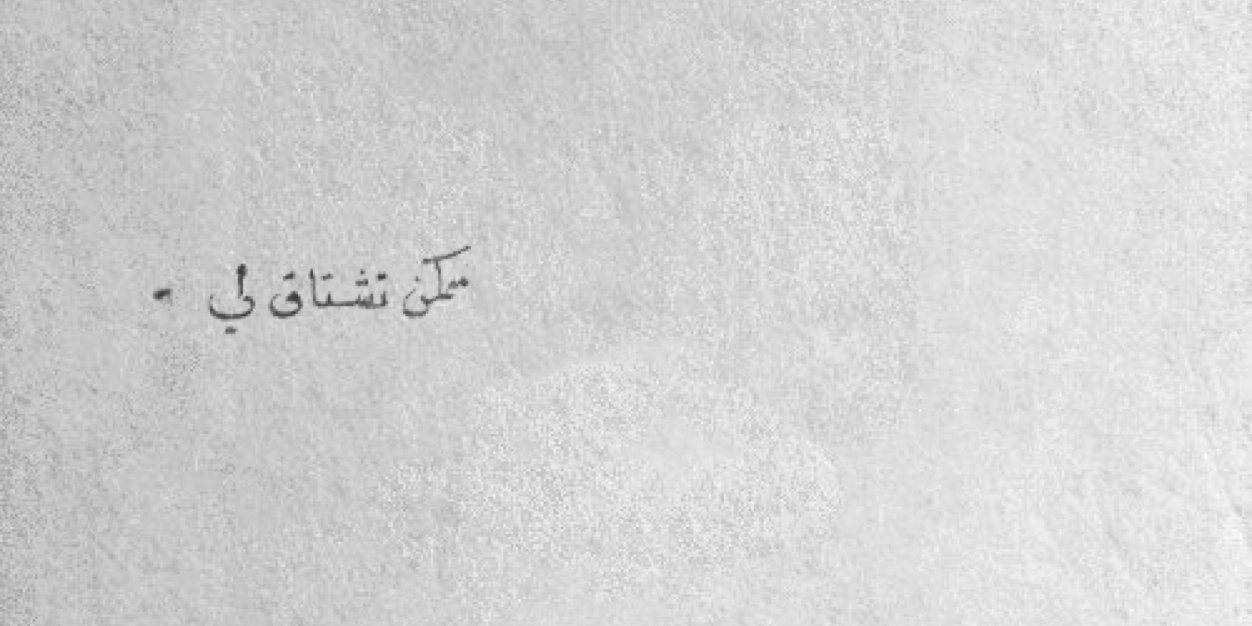 ممكن تشتاق لي .